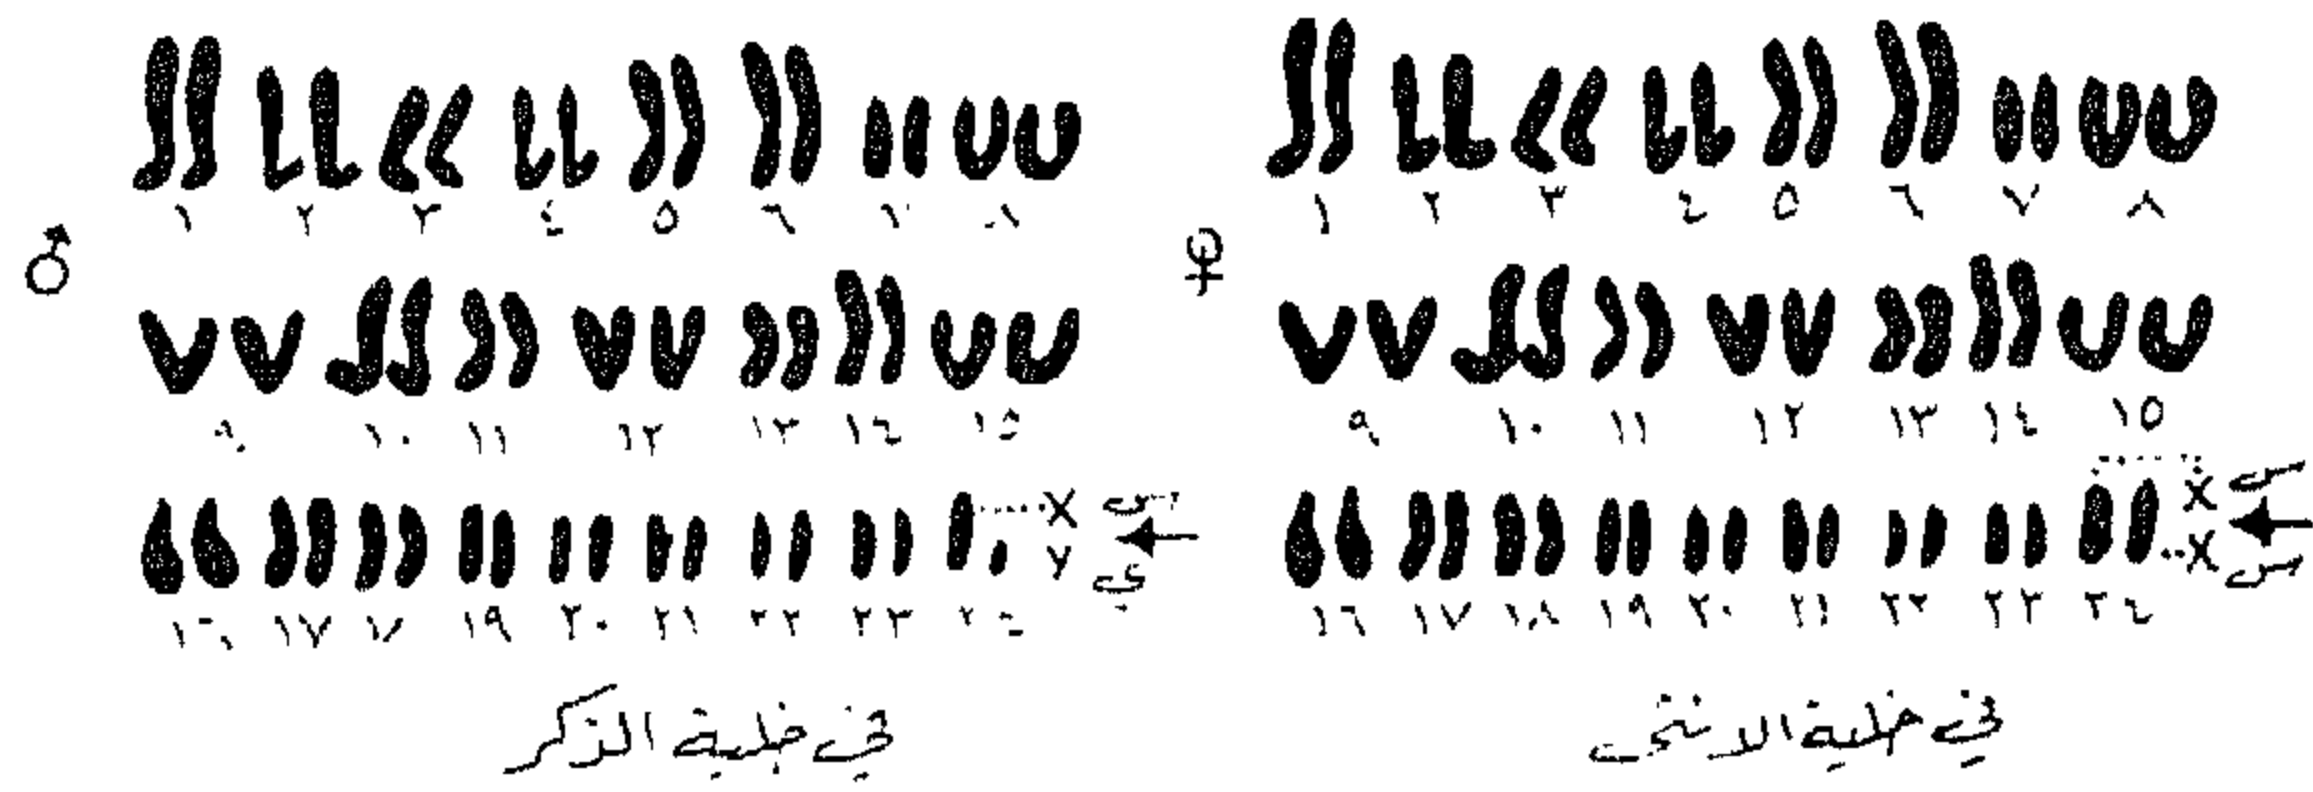 ١ ٢ ٣ ٤ ٥ ٦ ٧ ٨
٩ ١٠ ١١ ١٢ ١٣ ١٤ ١٥
X س
Y ي
١٦ ١٧ ١٩ ٢٠ ٢١ ٢٢ ٢٣ ٢٤
في خلية الذكر
١ ٢ ٣ ٤ ٥ ٦ ٧ ٨
٩ ١٠ ١١ ١٢ ١٣ ١٤ ١٥
X س
X س
١٦ ١٧ ١٨ ١٩ ٢٠ ٢١ ٢٢ ٢٣ ٢٤
في خلية الانثى